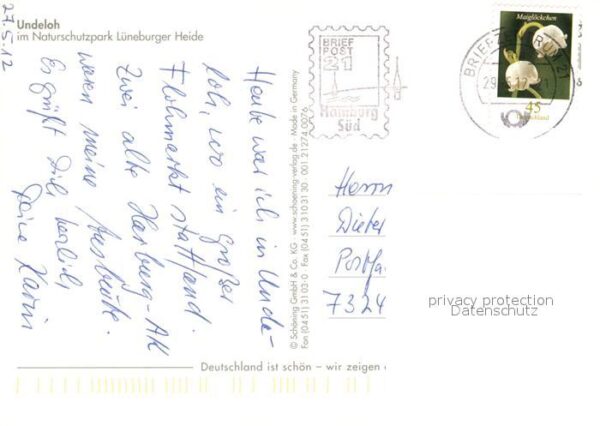 Undeloh
im Naturschutzpark Lüneburger Heide
27.5.12
Heute war ich in Unde-
loh, wo ein großer
Flohmarkt stattfand.
Zwei alte Harburg-AK
waren meine Ausbeute.
Es grüßt Dich herzlich
Deine Karin
© Schöning GmbH & Co. KG · www.schoening-verlag.de · Made in Germany
Fon (04 51) 31 03-0 · Fax (04 51) 3 10 31 30 · 001 21274 0076
BRIEF
POST
21
Hamburg
Süd
BRIEFZENTRUM 21
Maiglöckchen
45
Deutschland
Herrn
Dieter
Postfa
7324
privacy protection
Datenschutz
Deutschland ist schön – wir zeigen